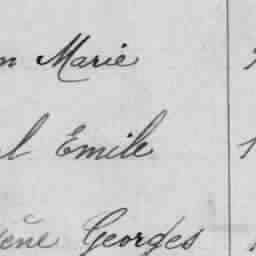 n Marie
l Emile
ène Georges